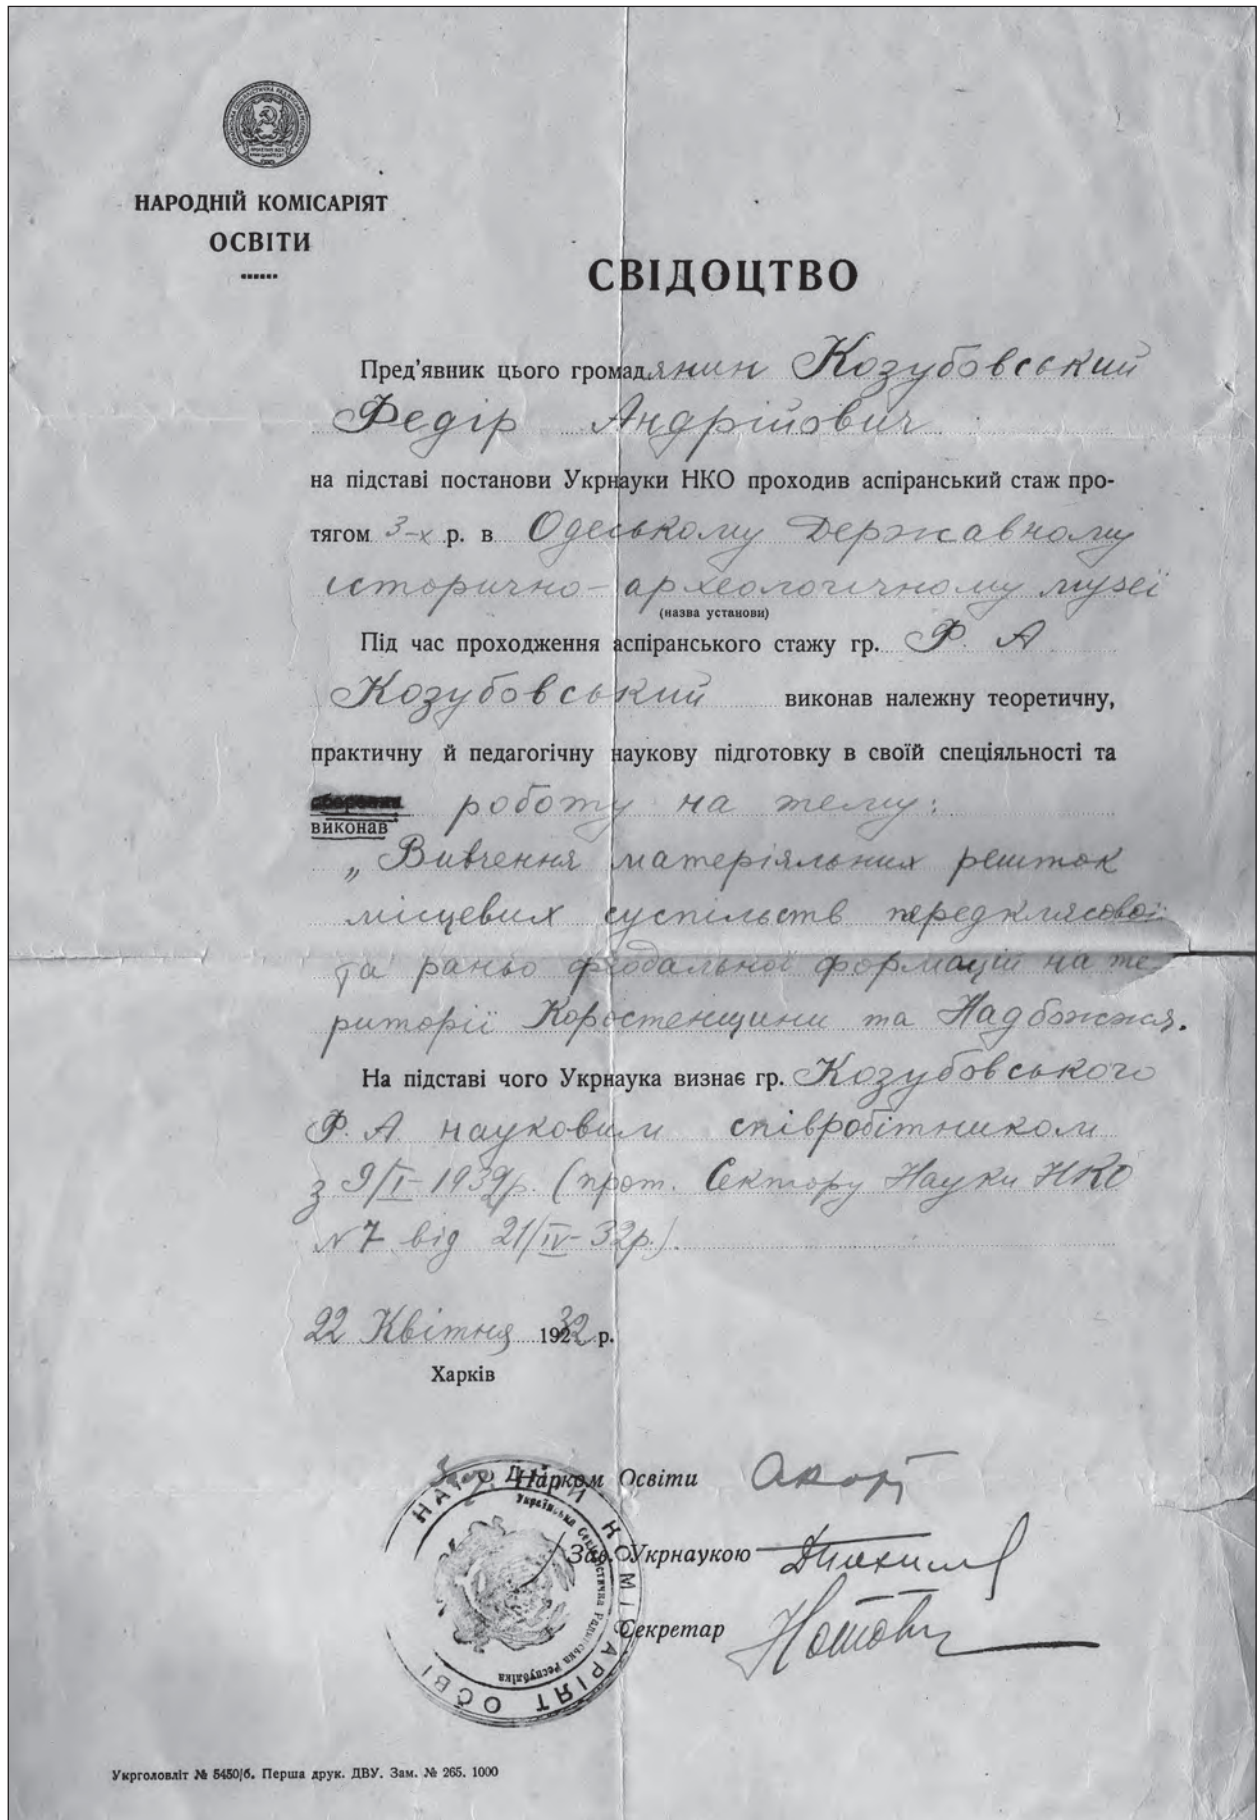 НАРОДНІЙ КОМІСАРІЯТ
ОСВІТИ
СВІДОЦТВО
Пред'явник цього громадянин Козубовський
Федір Андрійович
на підставі постанови Укрнауки НКО проходив аспіранський стаж про-
тягом 3-х р. в Одеському Державному
історично-археологічному музеї
(назва установи)
Під час проходження аспіранського стажу гр. Ф. А
Козубовський виконав належну теоретичну,
практичну й педагогічну наукову підготовку в своїй спеціяльності та
роботу на тему:
виконав
„Вивчення матеріяльних решток
місцевих суспільств передклясової
та раньо феодальної формацій на те-
риторії Коростенщини та Надбожжя.
На підставі чого Укрнаука визнає гр. Козубовського
Ф. А науковим співробітником
з 9/І-1932р. (прот. Сектору Науки НКО
№ 7 від 21/IV-32р.).
22 Квітня 1932 р.
Харків
Нарком Освіти
Зав. Укрнаукою
Секретар
НАРОДНІЙ КОМІСАРІЯТ ОСВІ
Українська Соціялістична Радянська Республіка
Укрголовліт № 5450/б. Перша друк. ДВУ. Зам. № 265. 1000